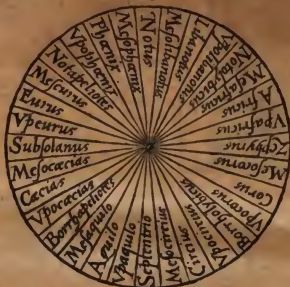 Notus
Mesolibanotus
Libanotus
Vpolibanotus
Notafricus
Mesafricus
Africus
Vpafricus
Zephyrus
Mesocorus
Corus
Vpocorus
Borrholybicus
Vpocircius
Circius
Mesocircius
Septentrio
Vpaquilo
Aquilo
Mesaquilo
Borrhapeliotes
Vpocæcias
Cæcias
Mesocæcias
Subsolanus
Vpeurus
Eurus
Meseurus
Notapeliotes
Vpophœnix
Phœnix
Mesophœnix